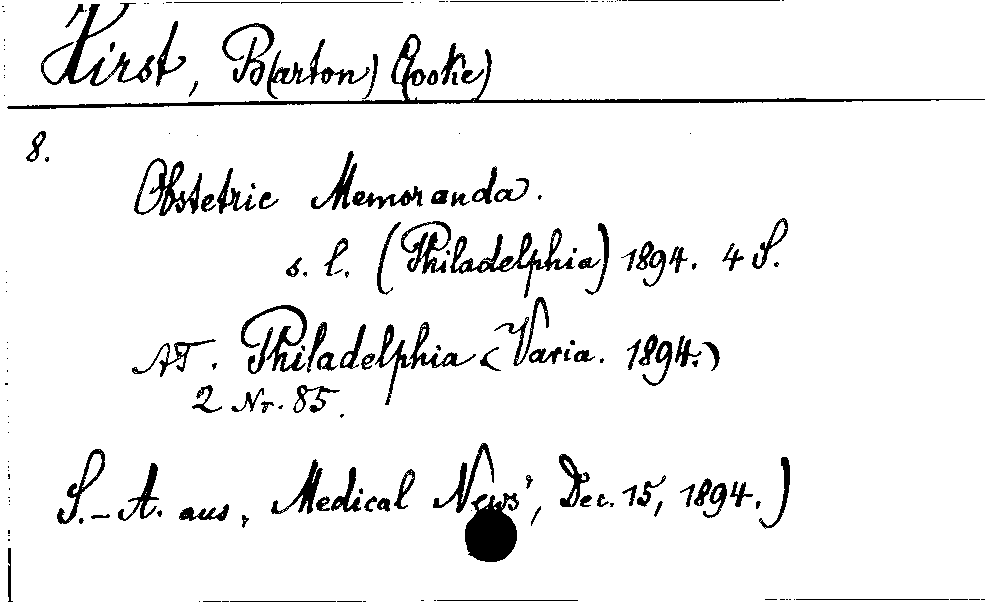 Hirst, B(arton) C(ooke)
8.
Obstetric Memoranda.
s. l. (Philadelphia) 1894. 4 S.
AT. Philadelphia (Varia. 1894.)
2 Nr. 85.
S.-A. aus „Medical News", Dec. 15, 1894.)